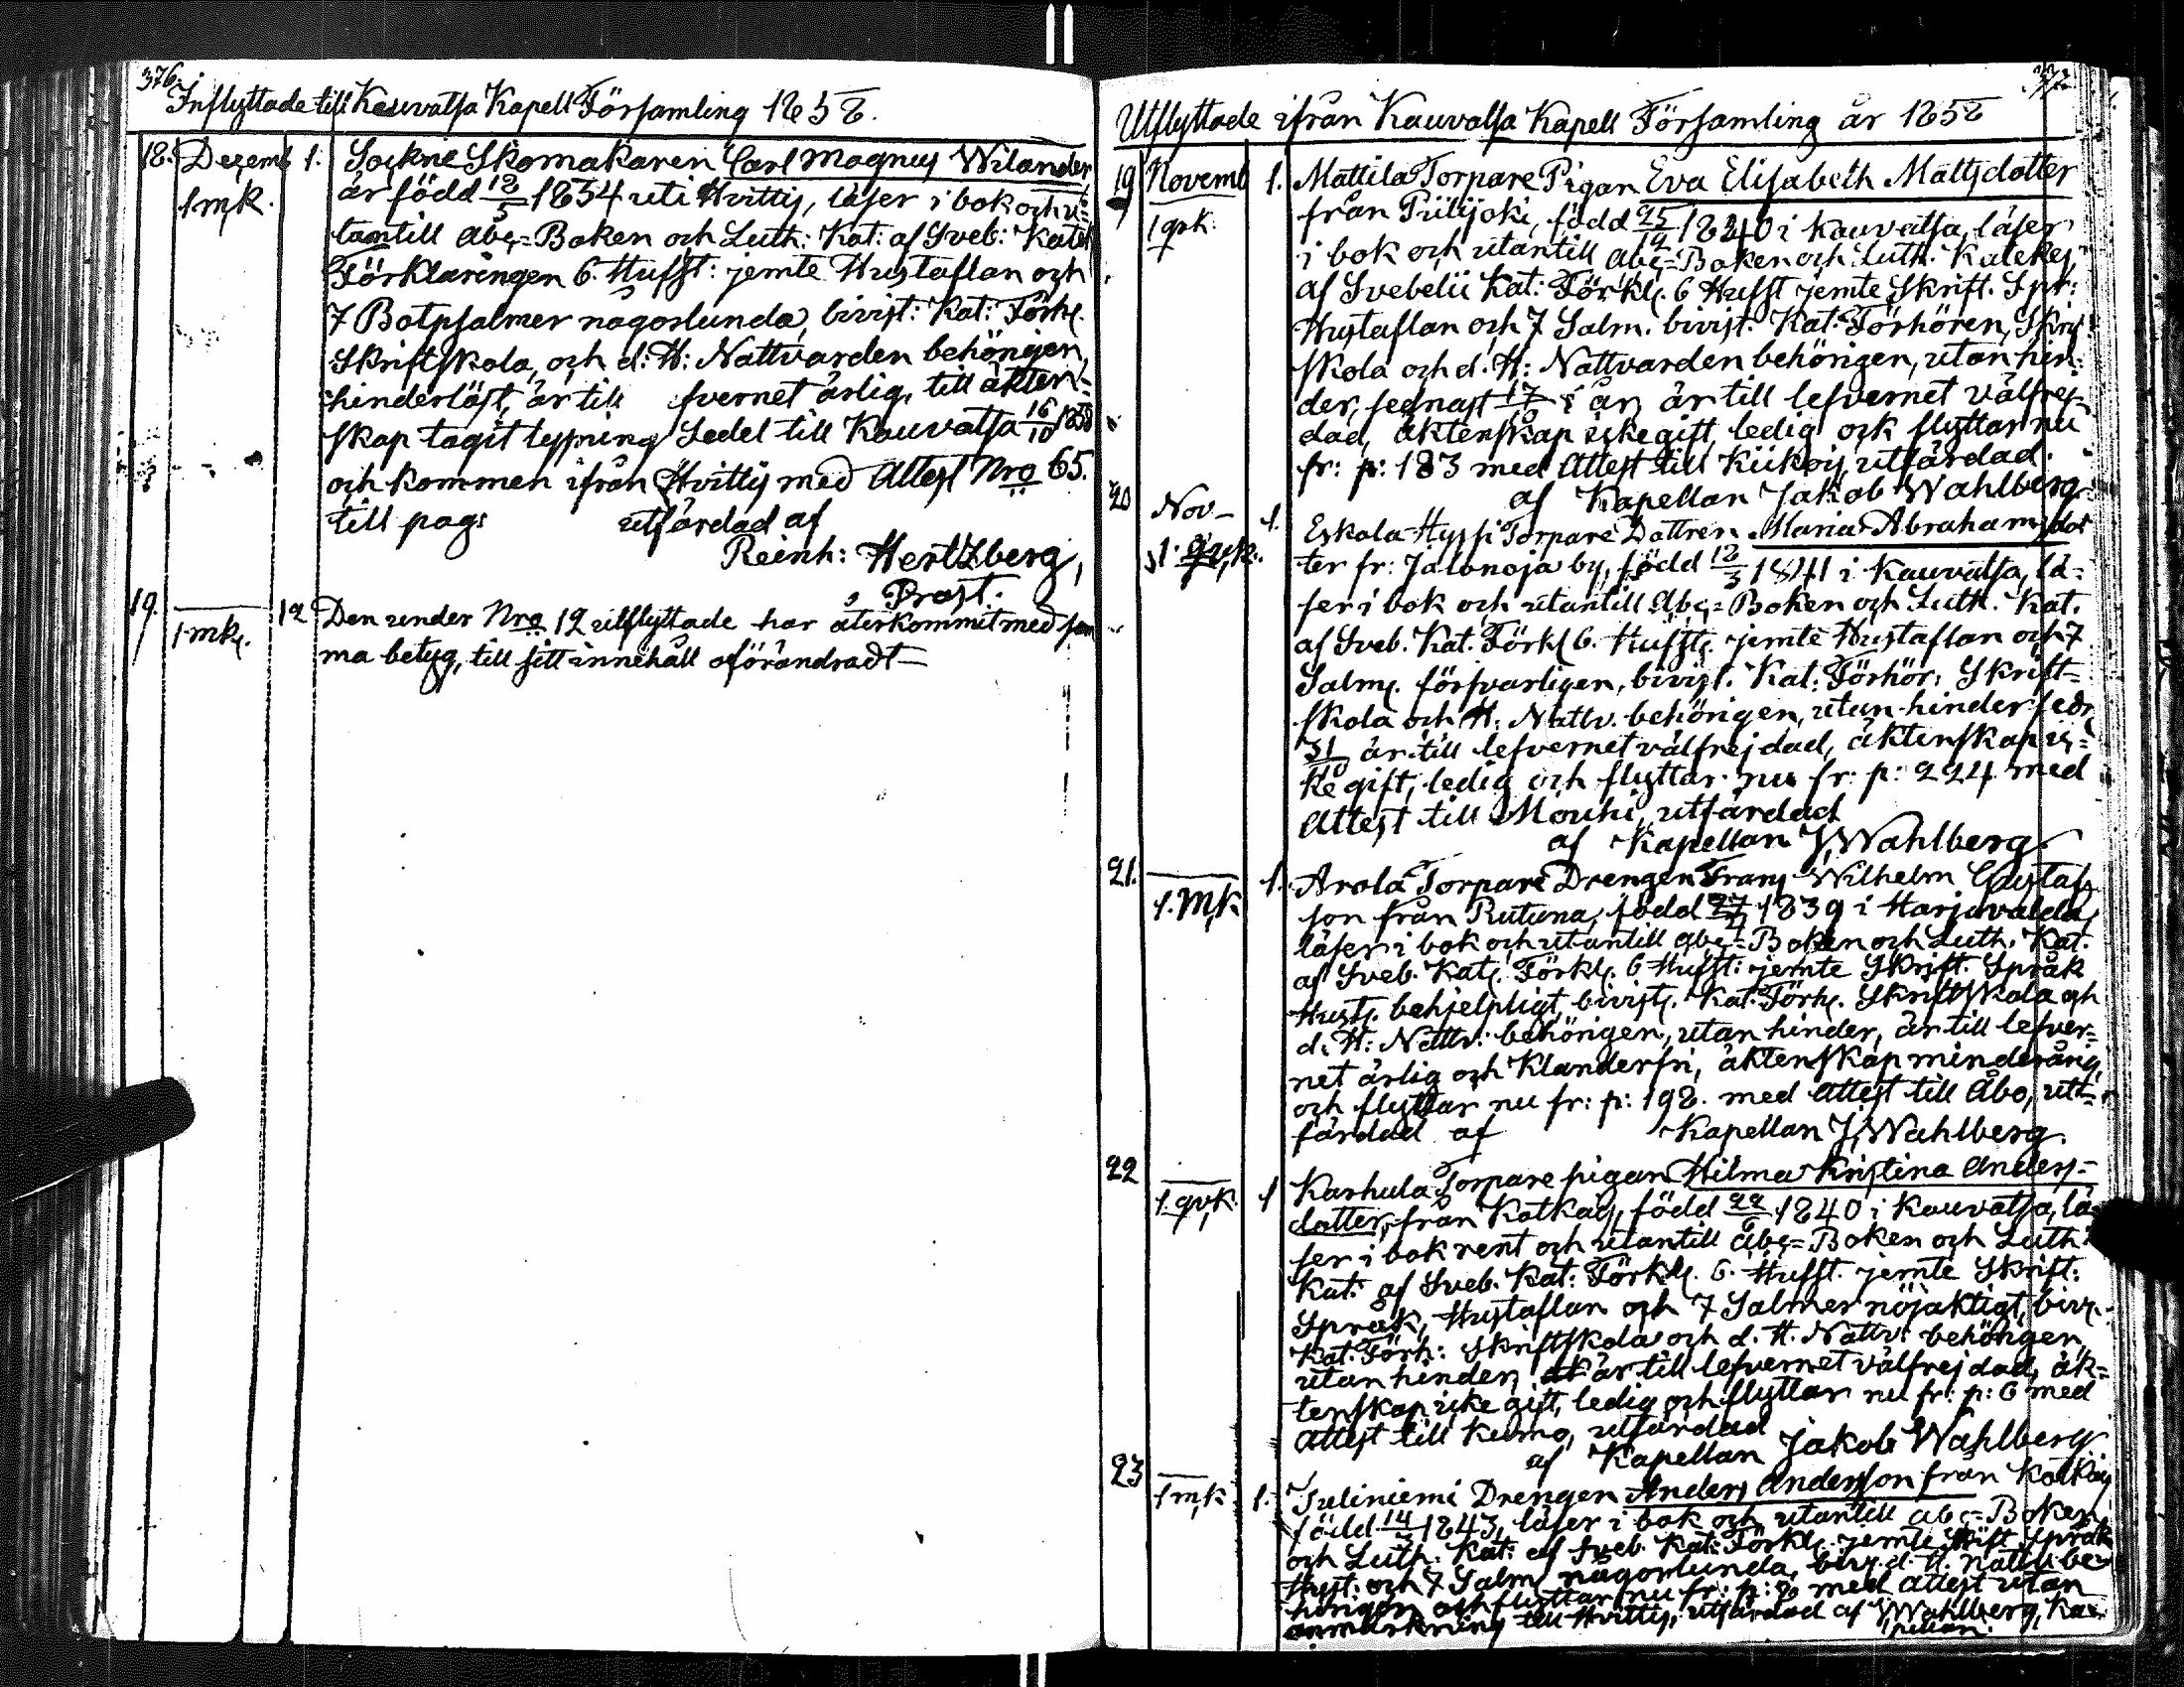 376.
Inflyttade till Kauvatsa Kapell Församling 1858.
18. Dezemb 1. Sockne Skomakaren Carl Magnus Wilander
1.mk. är född 18/5 1834 uti Hvittis, läser i bok och u=
tantill Abc=Boken och Luth: Kat: af Sveb: Kat:
Förklaringen 6. Hufst: jemte Hustaflan och
7 Botpsalmer någorlunda, bivist: Kat: Förh.
Skriftskola, och d: H: Nattvarden behörigen,
hinderlöst, är till fvernet ärlig, till äkten=
skap tagit lysning Sedel till Kauvatsa 16/10 1858
och kommen ifrån Hvittis med Attest Nro 65.
till pag: utfärdad af
Reinh: Hertzberg,
Prost.
19. 1 mk. 12 Den under Nro 12 utflyttade har återkommit med sam
ma betyg, till sitt innehåll oförändradt
377.
Utflyttade ifrån Kauvatsa Kapell Församling år 1858
19 Novemb 1. Mattila Torpare Pigan Eva Elisabeth Mattsdotter
1 qvk. från Piilijoki, född 25/12 1840 i Kauvatsa, läser
i bok och utantill abc=Boken och Luth. Katekes,
af Svebelii Kat: Förkl. 6 Hufst jemte Skrift. Spr:
Hustaflan och 7 Salm. bivist. Kat. Förhören, Skrif
skola och d. H: Nattvarden behörigen, utan hin=
der, sednast 17/ i år, är till lefvernet välfrej
dad, äktenskap icke gift, ledig och flyttar nu
fr: p: 183 med Attest till Kiikois utfärdad.
af Kapellan Jakob Wahlberg.
20 Nov- 1. Eskola Hyssi Torpare Dottren Maria Abrahamsdot
1 qvk. ter fr: Jalonoja by, född 18/3 1841 i Kauvatsa, lä=
ser i bok och utantill Abc=Boken och Luth. Kat.
af Sveb. Kat. Förkl 6. Hufst. jemte Hustaflan och 7
Salm. försvarligen, bivist. Kat. Förhör, Skrift=
skola och H. Nattv. behörigen, utan hinder sedn
31/10 är till lefvernet välfrejdad, äktenskap ic=
ke gift, ledig och flyttar nu fr: p: 224 med
Attest till Mouhi, utfärdad
af Kapellan J Wahlberg
21. 1. Mk 1. Arola Torpare Drengen Frans Wilhelm Gustafs
son från Rutuna, född 27/ 1839 i Harjavalda,
läser i bok och utantill abc=Boken och Luth. Kat.
af Sveb. Kat. Förkl. 6 Hufst: jemte Skrift. Språk
Hust. behjelpligt, bivist. Kat. Förh. Skriftskola och
d. H: Nattv: behörigen, utan hinder, är till lefver=
net ärlig och Klanderfri, äktenskap minderårig,
och flyttar nu fr: p: 198. med Attest till Åbo, ut=
färdad af Kapellan J. Wahlberg.
22 1. qvk. 1 Karhula Torpare pigan Hilma Kristina Anders=
dotter, från Katkais, född 22/6 1840 i Kauvatsa, lä=
ser i bok rent och utantill abc=Boken och Luth:
Kat: af Sveb. Kat: Förkl. 6. Hufst. jemte Skrift:
Språk, Hustaflan och 7 Salmer nöjaktigt, biv.
Kat. Förh: Skriftskola och d. H. Nattv: behörigen,
utan hinder, är till lefvernet välfrejdad, äk=
tenskap icke gift, ledig och flyttar nu fr: p: 6 med
Attest till Kumo, utfärdad
af Kapellan Jakob Wahlberg.
23 1 mk 1. Juliniemi Drengen Anders Andersson från Katkais
född 14/ 1843, läser i bok och utantill abc=Boken
och Luth. Kat: af Sveb. Kat: Förkl. jemte Skift Språk
Hust. och 7 Salm någorlunda, biv. d. H. Nattv. be=
hörigen och flyttar nu fr: p: med attest utan
anmärkning till Hvittis, utfärdad af J Wahlberg, Ka=
pellan.